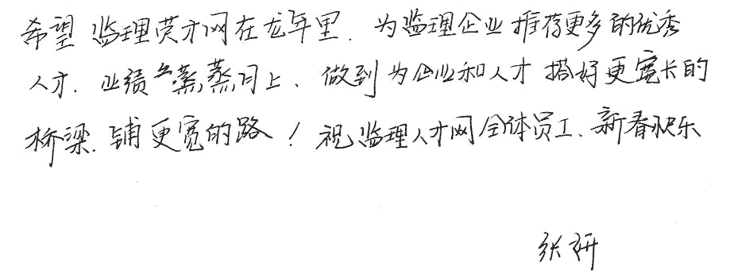 希望 监理英才网在龙年里、为监理企业推荐更多的优秀
人才、业绩蒸蒸日上、做到为企业和人才搭好更宽长的
桥梁、铺更宽的路！祝监理人才网全体员工、新春快乐
张妍